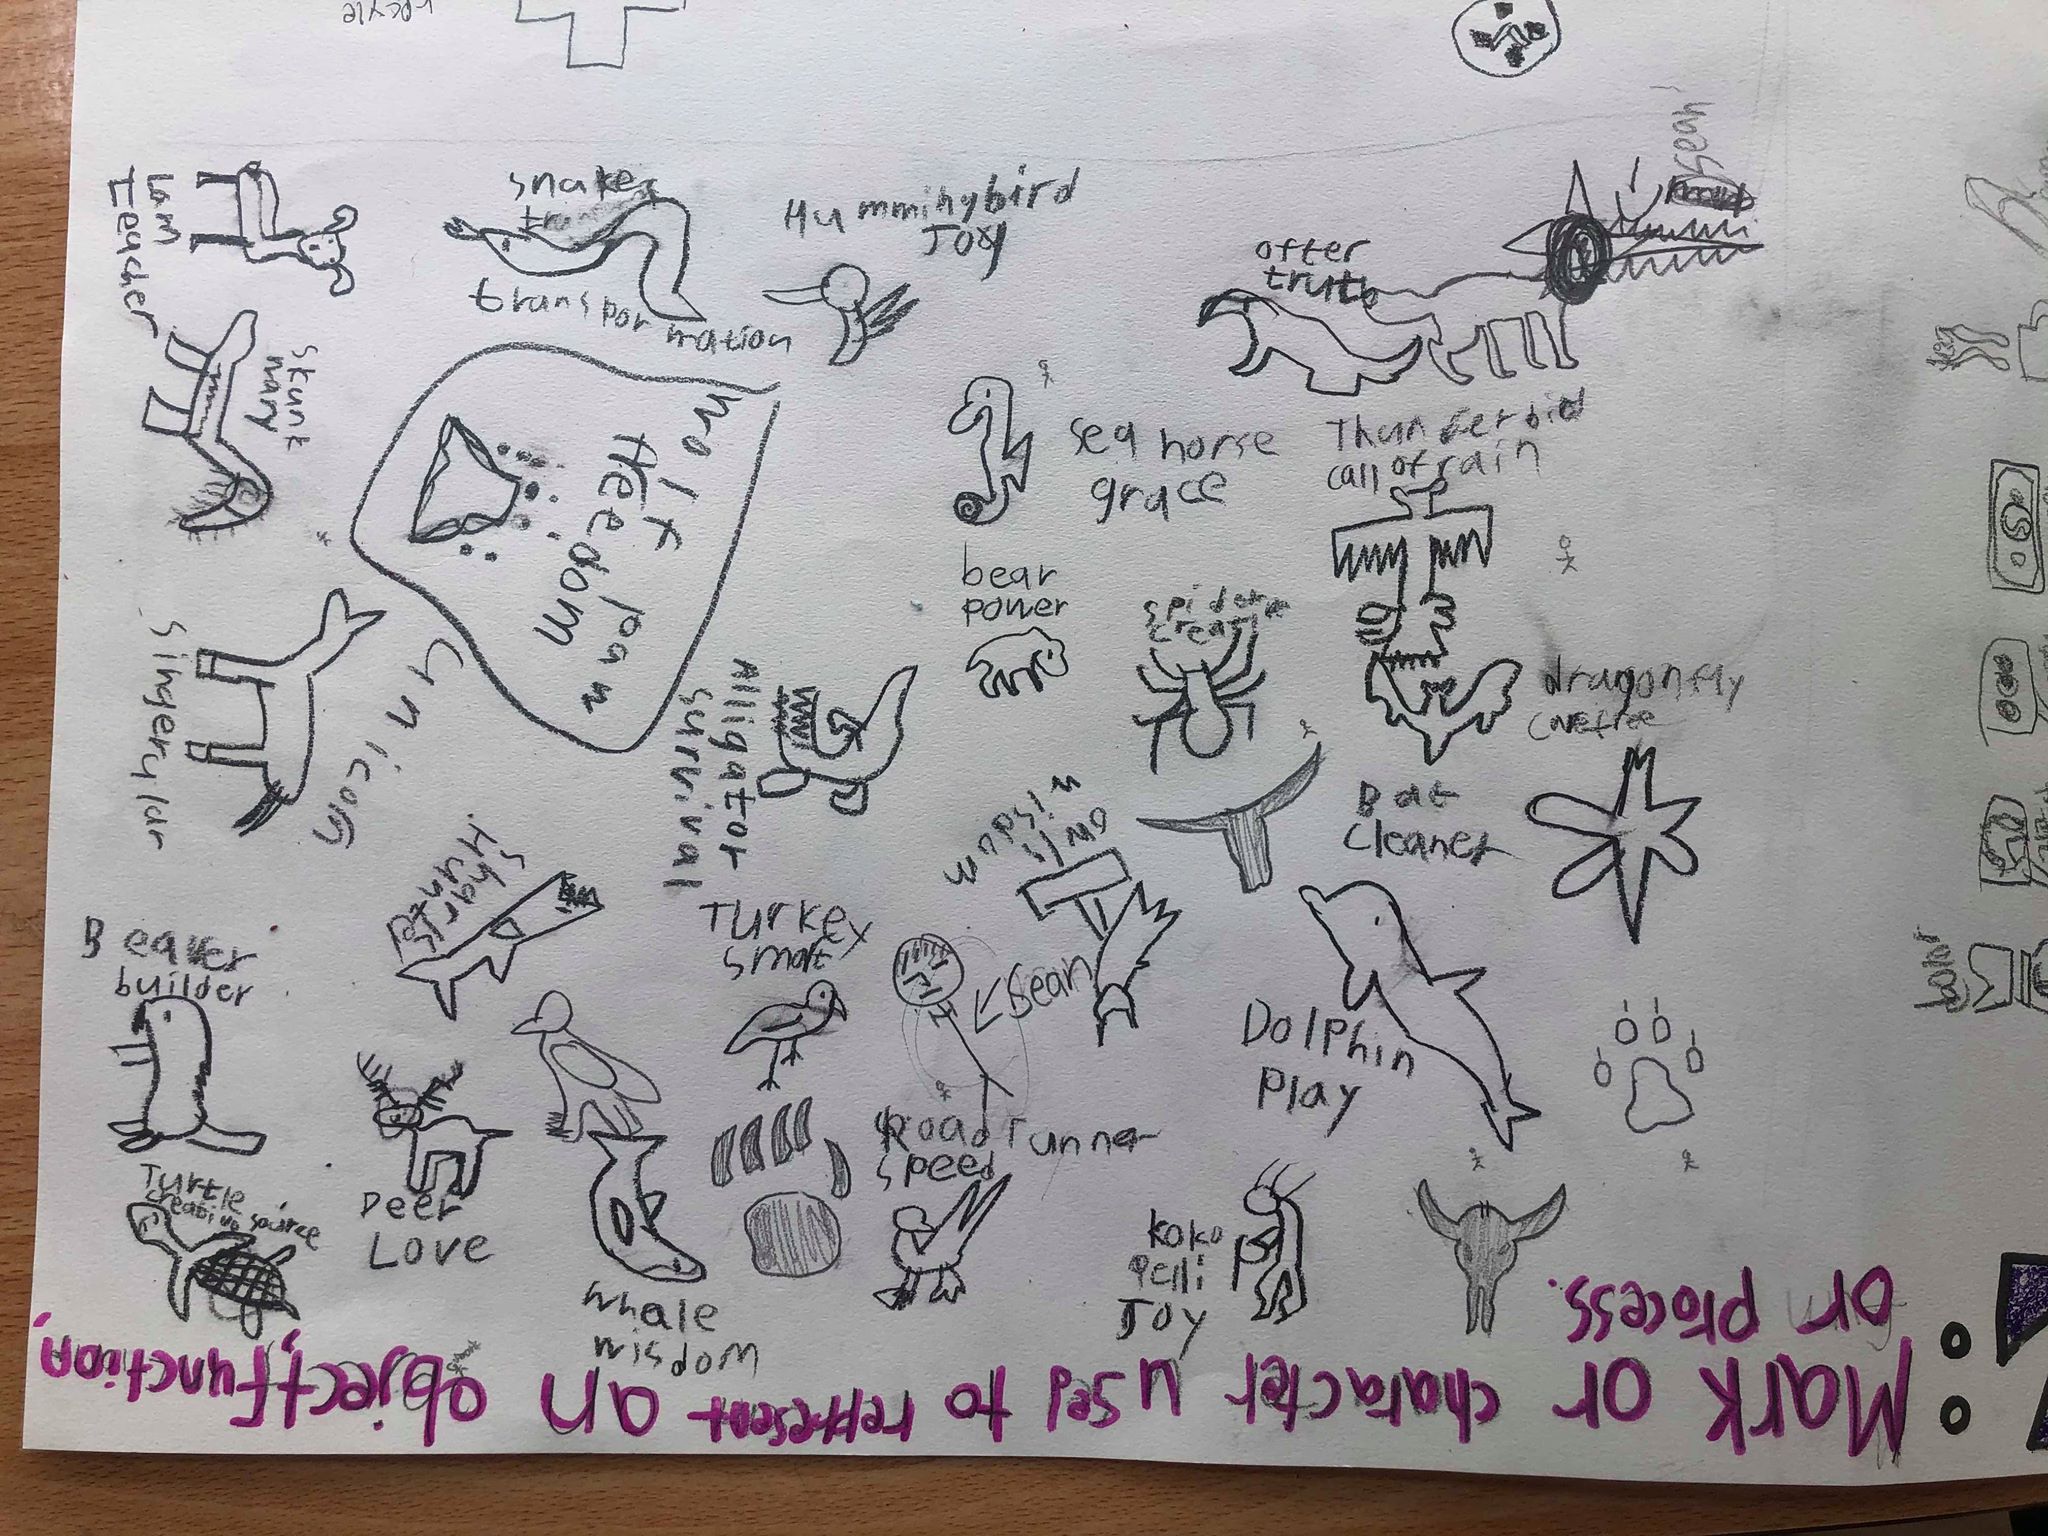 Mark or character used to represent an object, function,
or process.
Lam
teacher
Snake
transpormation
Hummingbird
JOY
otter
truth
Skunk
wary
wolf pawn
freedom
Sea horse
grace
Thunderbid
call of rain
bear
power
Unicorn
Alligator
survival
dragonfly
carefree
Bat
cleaner
Shark
Hunter
Turkey
smart
owl
wisdum
Beaver
builder
Sean
Dolphin
Play
Road runner
speed
Turtle
creative source
Deer
Love
whale
wisdom
koko
pelli
Joy